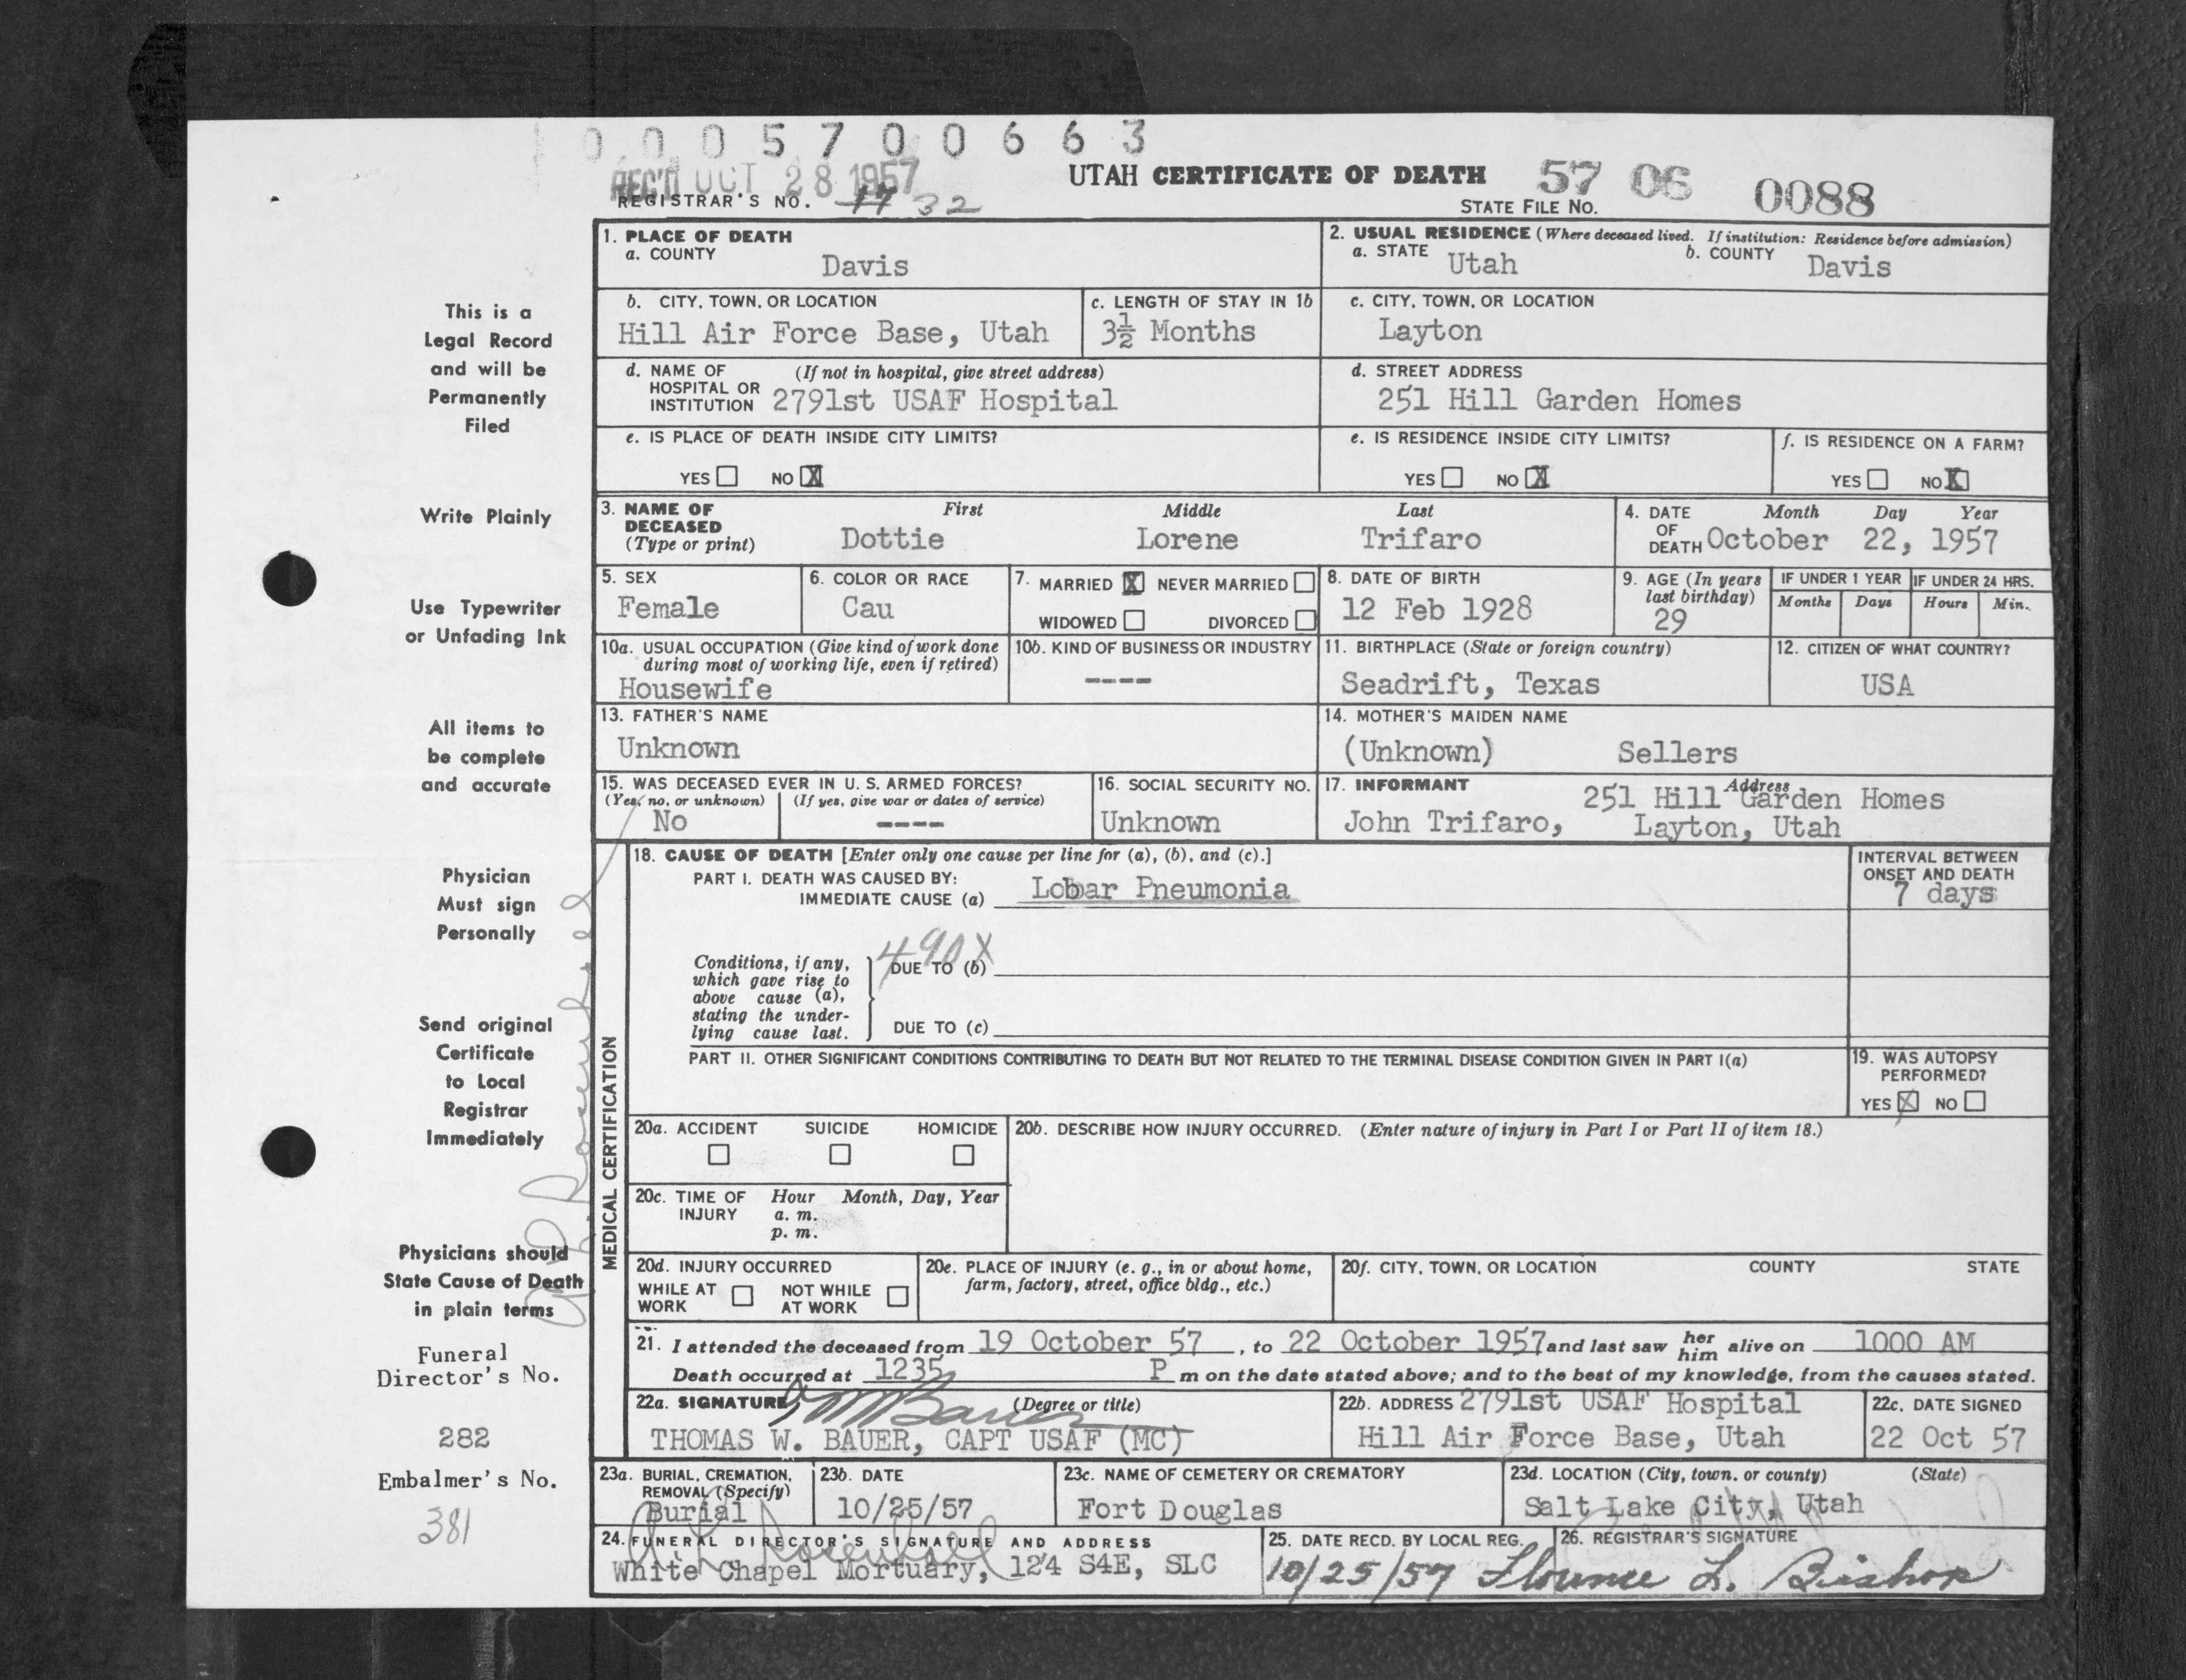 0005700663
REC'D OCT 28 1957
UTAH CERTIFICATE OF DEATH 57 06 0088
REGISTRAR'S NO. 17 32
STATE FILE No.
This is a
Legal Record
and will be
Permanently
Filed
Write Plainly
Use Typewriter
or Unfading Ink
All items to
be complete
and accurate
Physician
Must sign
Personally
Send original
Certificate
to Local
Registrar
Immediately
Physicians should
State Cause of Death
in plain terms
Funeral
Director's No.
282
Embalmer's No.
381
1. PLACE OF DEATH
a. COUNTY
Davis
2. USUAL RESIDENCE (Where deceased lived. If institution: Residence before admission)
a. STATE Utah b. COUNTY Davis
b. CITY, TOWN, OR LOCATION
Hill Air Force Base, Utah
c. LENGTH OF STAY IN 1b
3½ Months
c. CITY, TOWN, OR LOCATION
Layton
d. NAME OF (If not in hospital, give street address)
HOSPITAL OR
INSTITUTION 2791st USAF Hospital
d. STREET ADDRESS
251 Hill Garden Homes
e. IS PLACE OF DEATH INSIDE CITY LIMITS?
YES NO X
e. IS RESIDENCE INSIDE CITY LIMITS?
YES NO X
f. IS RESIDENCE ON A FARM?
YES NO X
3. NAME OF First Middle Last
DECEASED
(Type or print) Dottie Lorene Trifaro
4. DATE Month Day Year
OF
DEATH October 22, 1957
5. SEX
Female
6. COLOR OR RACE
Cau
7. MARRIED X NEVER MARRIED
WIDOWED DIVORCED
8. DATE OF BIRTH
12 Feb 1928
9. AGE (In years
last birthday)
29
IF UNDER 1 YEAR
Months Days
IF UNDER 24 HRS.
Hours Min.
10a. USUAL OCCUPATION (Give kind of work done
during most of working life, even if retired)
Housewife
10b. KIND OF BUSINESS OR INDUSTRY
----
11. BIRTHPLACE (State or foreign country)
Seadrift, Texas
12. CITIZEN OF WHAT COUNTRY?
USA
13. FATHER'S NAME
Unknown
14. MOTHER'S MAIDEN NAME
(Unknown) Sellers
15. WAS DECEASED EVER IN U. S. ARMED FORCES?
(Yes, no, or unknown) (If yes, give war or dates of service)
No ----
16. SOCIAL SECURITY NO.
Unknown
17. INFORMANT Address
251 Hill Garden Homes
John Trifaro, Layton, Utah
MEDICAL CERTIFICATION
18. CAUSE OF DEATH [Enter only one cause per line for (a), (b), and (c).]
PART I. DEATH WAS CAUSED BY:
IMMEDIATE CAUSE (a) Lobar Pneumonia
INTERVAL BETWEEN
ONSET AND DEATH
7 days
490X
Conditions, if any,
which gave rise to
above cause (a),
stating the under-
lying cause last.
DUE TO (b)
DUE TO (c)
PART II. OTHER SIGNIFICANT CONDITIONS CONTRIBUTING TO DEATH BUT NOT RELATED TO THE TERMINAL DISEASE CONDITION GIVEN IN PART I(a)
19. WAS AUTOPSY
PERFORMED?
YES X NO
20a. ACCIDENT SUICIDE HOMICIDE
20b. DESCRIBE HOW INJURY OCCURRED. (Enter nature of injury in Part I or Part II of item 18.)
20c. TIME OF Hour Month, Day, Year
INJURY a. m.
p. m.
20d. INJURY OCCURRED
WHILE AT NOT WHILE
WORK AT WORK
20e. PLACE OF INJURY (e. g., in or about home,
farm, factory, street, office bldg., etc.)
20f. CITY, TOWN, OR LOCATION COUNTY STATE
21. I attended the deceased from 19 October 57, to 22 October 1957 and last saw her him alive on 1000 AM
Death occurred at 1235 P m on the date stated above; and to the best of my knowledge, from the causes stated.
22a. SIGNATURE (Degree or title)
THOMAS W. BAUER, CAPT USAF (MC)
22b. ADDRESS 2791st USAF Hospital
Hill Air Force Base, Utah
22c. DATE SIGNED
22 Oct 57
23a. BURIAL, CREMATION,
REMOVAL (Specify)
Burial
23b. DATE
10/25/57
23c. NAME OF CEMETERY OR CREMATORY
Fort Douglas
23d. LOCATION (City, town, or county) (State)
Salt Lake City, Utah
24. FUNERAL DIRECTOR'S SIGNATURE AND ADDRESS
White Chapel Mortuary, 124 S4E, SLC
25. DATE RECD. BY LOCAL REG.
10/25/57
26. REGISTRAR'S SIGNATURE
Florence L. Bishop